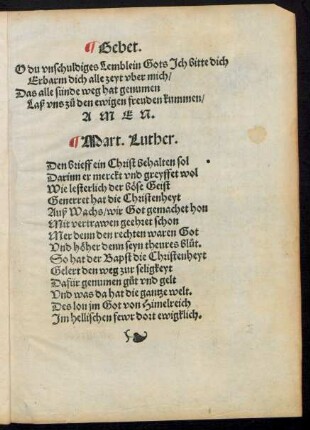 ¶ Gebet.
O du vnschuldiges Lemblein Gots Ich bitte dich
Erbarm dich alle zeyt vber mich/
Das alle sünde weg hat genumen
Laß vns zů den ewigen freuden kummen/
A M E N.
¶ Mart. Luther.
Den brieff ein Christ behalten sol
Darim er merckt vnd greyffet wol
Wie lesterlich der böse Geist
Generret hat die Christenheyt
Auß Wachs/wir Got gemachet hon
Mit vertrawen geehret schon
Mer denn den rechten waren Got
Vnd höher denn seyn theures blůt.
So hat der Bapst die Christenheyt
Gelert den weg zur seligkeyt
Dafür genumen gůt vnd gelt
Vnd was da hat die gantze welt.
Des lon jm Got von Himelreich
Im hellischen fewr dort ewigklich.